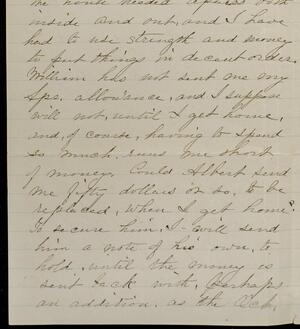 the house needed repairs both
inside and out, and I have
had to use strength and money
to put things in decent order.
William has not sent me my
Spr. allowance, and I suppose
will not, until I get home,
and, of course, having to spend
so much, runs me short
of money. Could Albert send
me fifty dollars or so, to be
replaced, when I get home?
to secure him, I will send
him a note of his own, to
hold, until the money is
sent back with, perhaps
an addition, as the